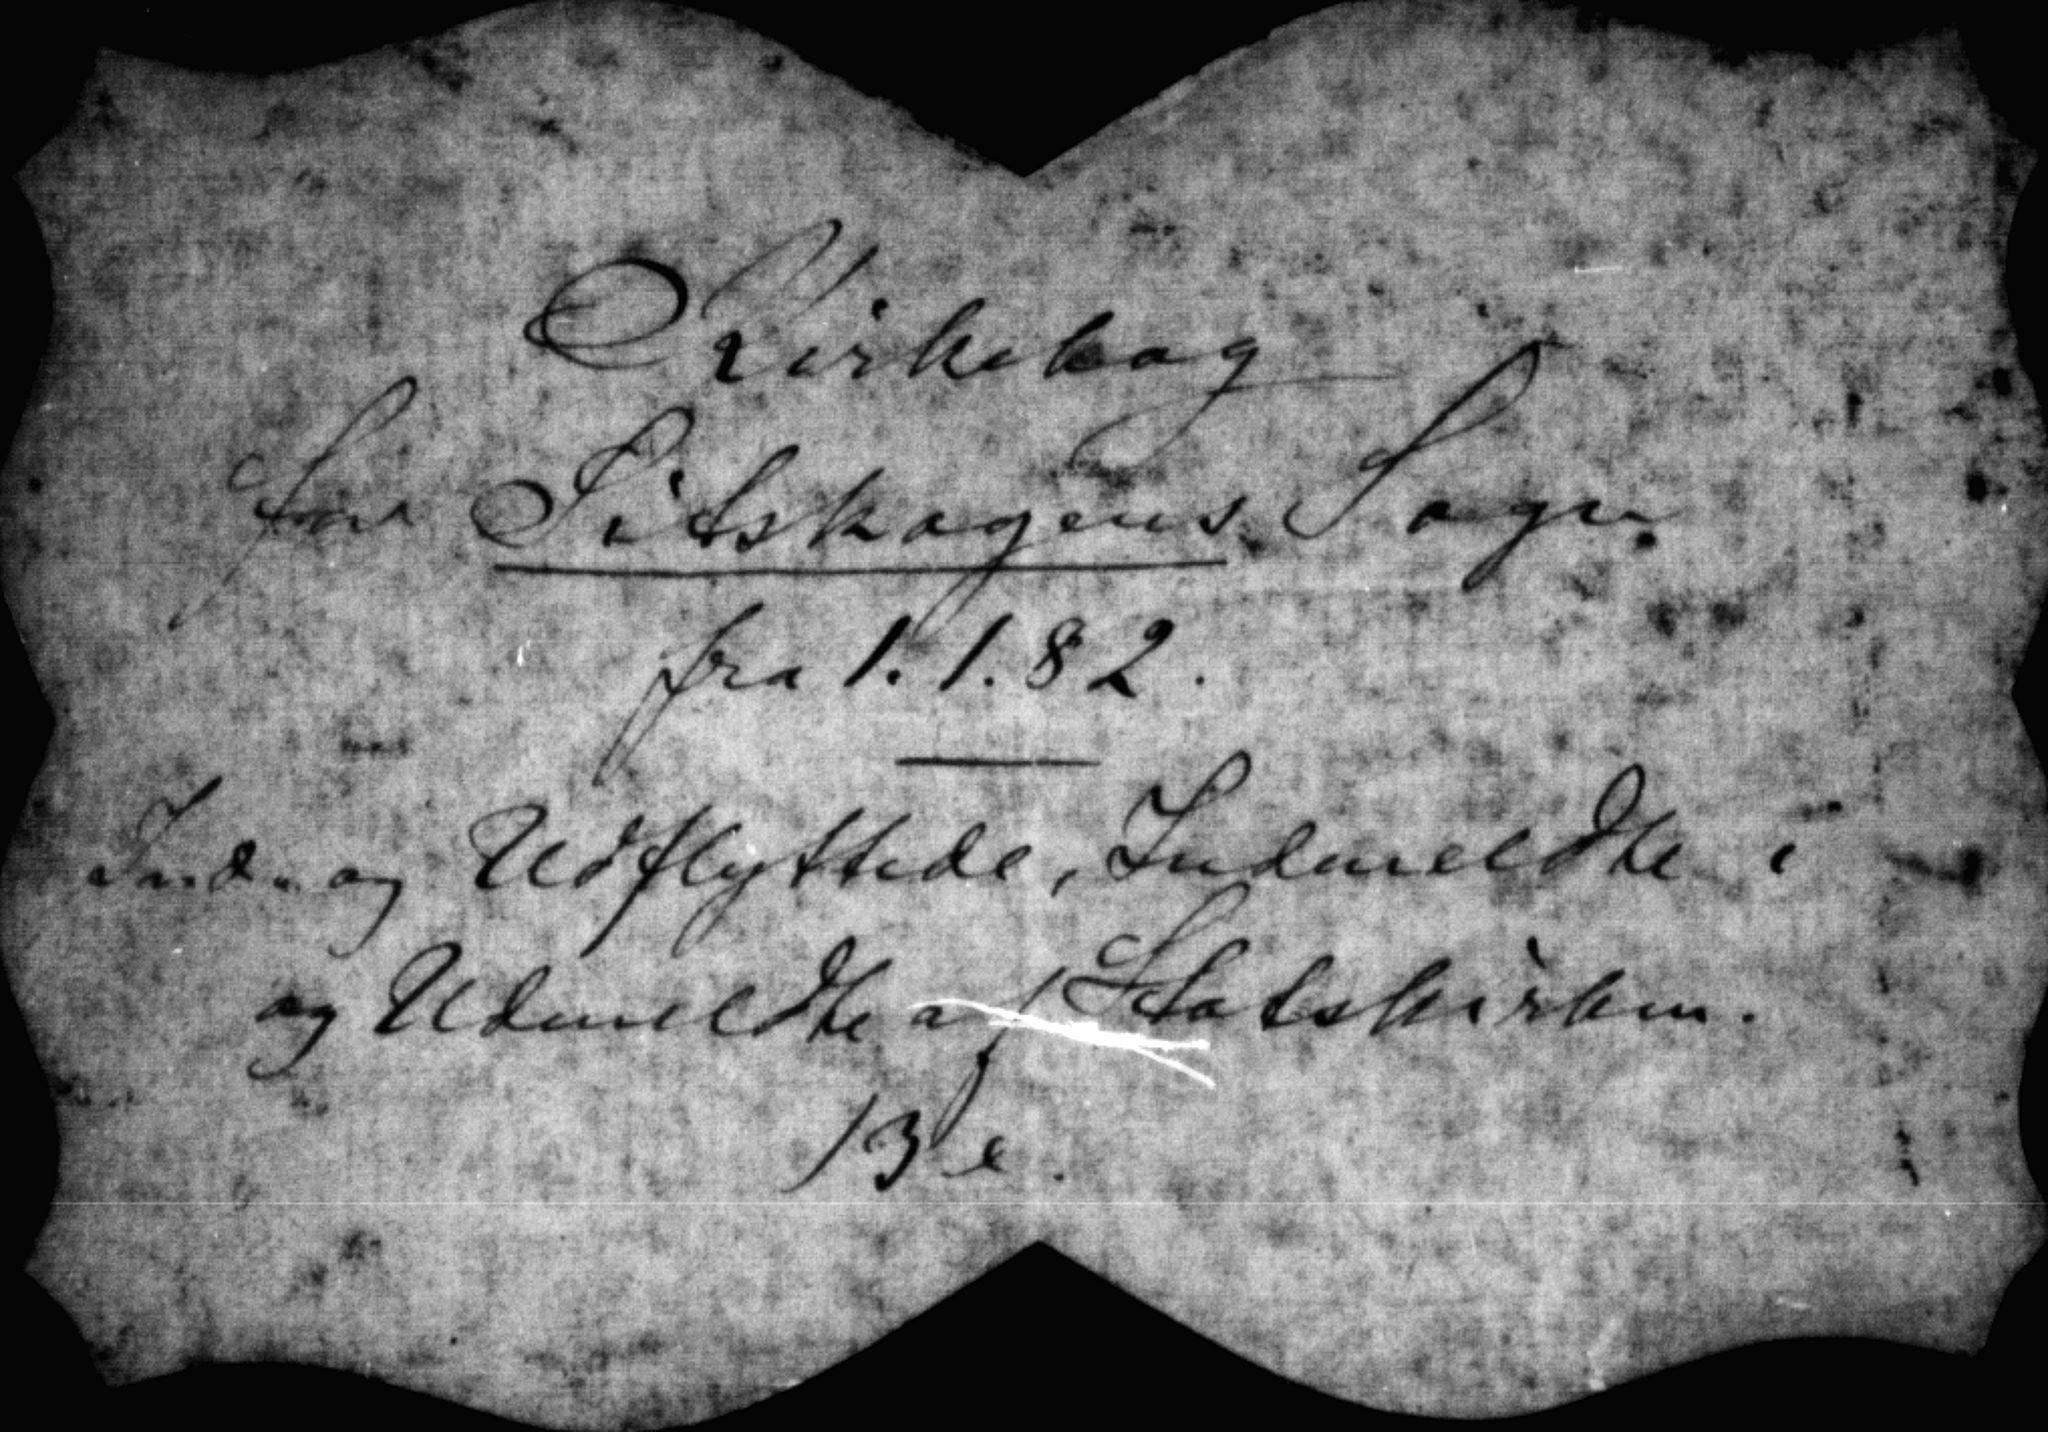 Kirkebog
for Fitskogens Sogn
fra 1.1.82.
Ind- og Udflyttede, Indmeldte i
og Udmeldte af Statskirken.
13 e.